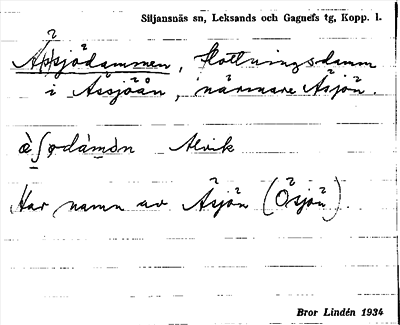 Siljansnäs sn, Leksands och Gagnefs tg, Kopp. l.
Åsjödammen, flottningsdamm
i Åssjöån, närmare Åsjön.
Alvik
Har namn av Åsjön (Ösjön).
Bror Lindén 1934